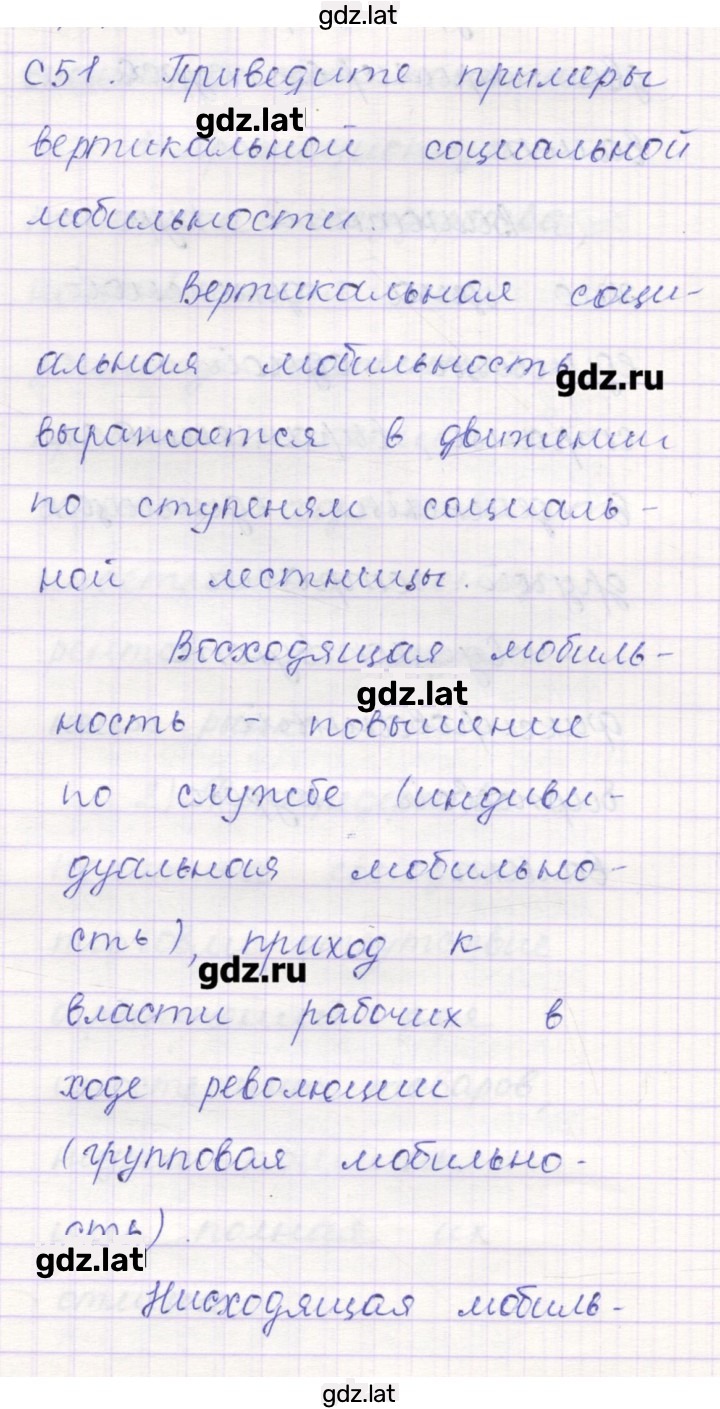 gdz.lat
С51. Приведите примеры
gdz.lat
вертикальной социальной
мобильности.
Вертикальная соци-
альная мобильность
gdz.ru
выражается в движении
по ступеням социаль-
ной лестницы.
Восходящая мобиль-
gdz.lat
ность - повышение
по службе (индиви-
дуальная мобильно-
сть), приход к
gdz.ru
власти рабочих в
ходе революции
(групповая мобильно-
сть).
gdz.lat
Нисходящая мобиль-
gdz.lat